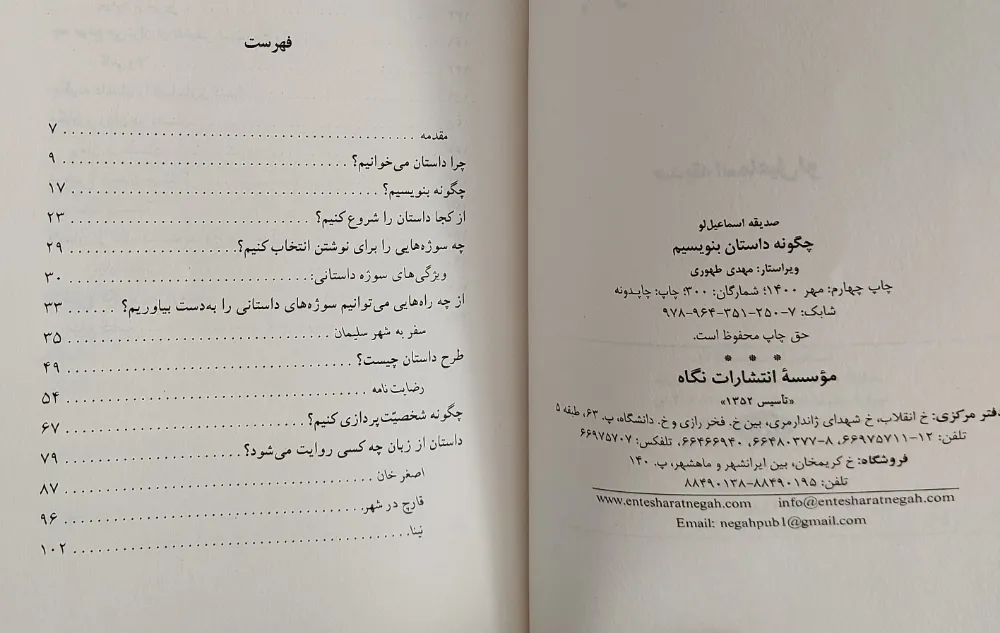 صدیقه اسماعیل‌لو
چگونه داستان بنویسیم
ویراستار: مهدی طهوری
چاپ چهارم: مهر ۱۴۰۰؛ شمارگان: ۳۰۰؛ چاپ: چاپدونه
شابک: ۷-۲۵۰-۳۵۱-۹۶۴-۹۷۸
حق چاپ محفوظ است.
* * *
مؤسسهٔ انتشارات نگاه
«تأسیس ۱۳۵۲»
دفتر مرکزی: خ انقلاب، خ شهدای ژاندارمری، بین خ. فخر رازی و خ. دانشگاه، پ. ۶۳، طبقه ۵
تلفن: ۱۲-۶۶۹۷۵۷۱۱، ۸-۶۶۴۸۰۳۷۷، ۶۶۴۶۶۹۴۰، تلفکس: ۶۶۹۷۵۷۰۷
فروشگاه: خ کریمخان، بین ایرانشهر و ماهشهر، پ. ۱۴۰
تلفن: ۸۸۴۹۰۱۹۵-۸۸۴۹۰۱۳۸
www.entesharatnegah.com info@entesharatnegah.com
Email: negahpub1@gmail.com
فهرست
مقدمه ........ ۷
چرا داستان می‌خوانیم؟ ........ ۹
چگونه بنویسیم؟ ........ ۱۷
از کجا داستان را شروع کنیم؟ ........ ۲۳
چه سوژه‌هایی را برای نوشتن انتخاب کنیم؟ ........ ۲۹
ویژگی‌های سوژه داستانی: ........ ۳۰
از چه راه‌هایی می‌توانیم سوژه‌های داستانی را به‌دست بیاوریم؟ ...... ۳۳
سفر به شهر سلیمان ........ ۳۵
طرح داستان چیست؟ ........ ۴۹
رضایت‌نامه ........ ۵۴
چگونه شخصیّت‌پردازی کنیم؟ ........ ۶۷
داستان از زبان چه کسی روایت می‌شود؟ ........ ۷۹
اصغر خان ........ ۸۷
قارچ در شهر ........ ۹۶
نینا ........ ۱۰۲